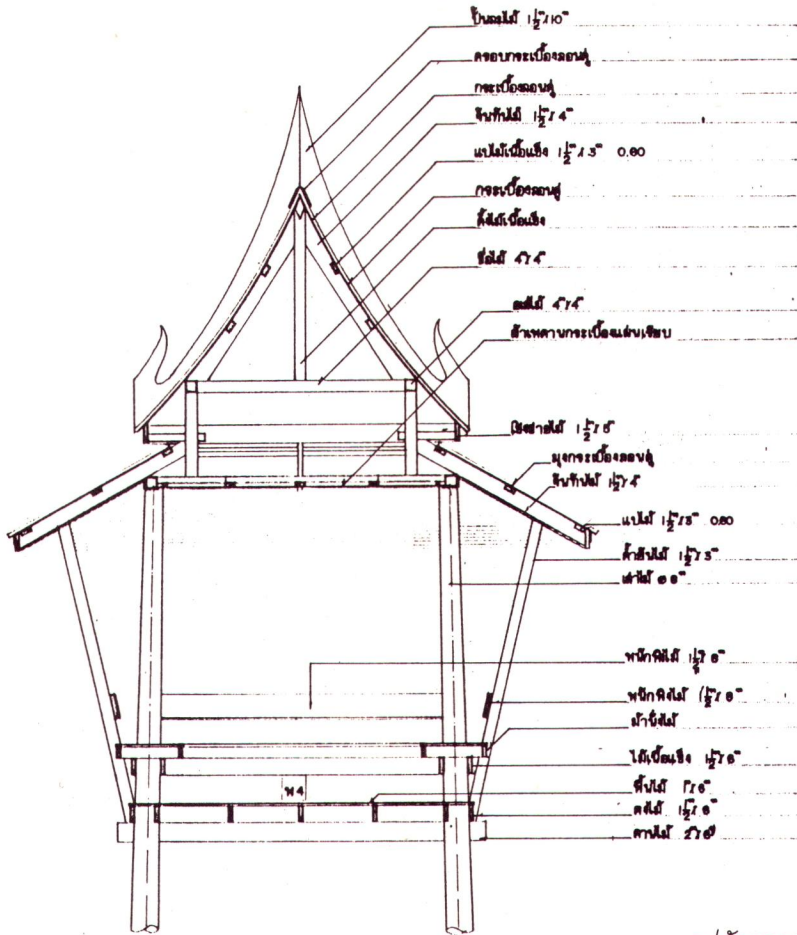 ปั้นลมไม้ 1½"x10"
ครอบกระเบื้องลอนคู่
กระเบื้องลอนคู่
จันทันไม้ 1½"x4"
แปไม้เนื้อแข็ง 1½"x3" 0.80
กระเบื้องลอนคู่
ดั้งไม้เนื้อแข็ง
ขื่อไม้ 4"x4"
อเสไม้ 4"x4"
ฝ้าเพดานกระเบื้องแผ่นเรียบ
เชิงชายไม้ 1½"x8"
มุงกระเบื้องลอนคู่
จันทันไม้ 1½"x4"
แปไม้ 1½"x3" 0.80
ค้ำยันไม้ 1½"x3"
เสาไม้ ø 8"
พนักพิงไม้ 1½"x8"
พนักพิงไม้ 1½"x8"
ม้านั่งไม้
ไม้เนื้อแข็ง 1½"x6"
พื้นไม้ 1"x6"
ตงไม้ 1½"x6"
คานไม้ 2"x6"